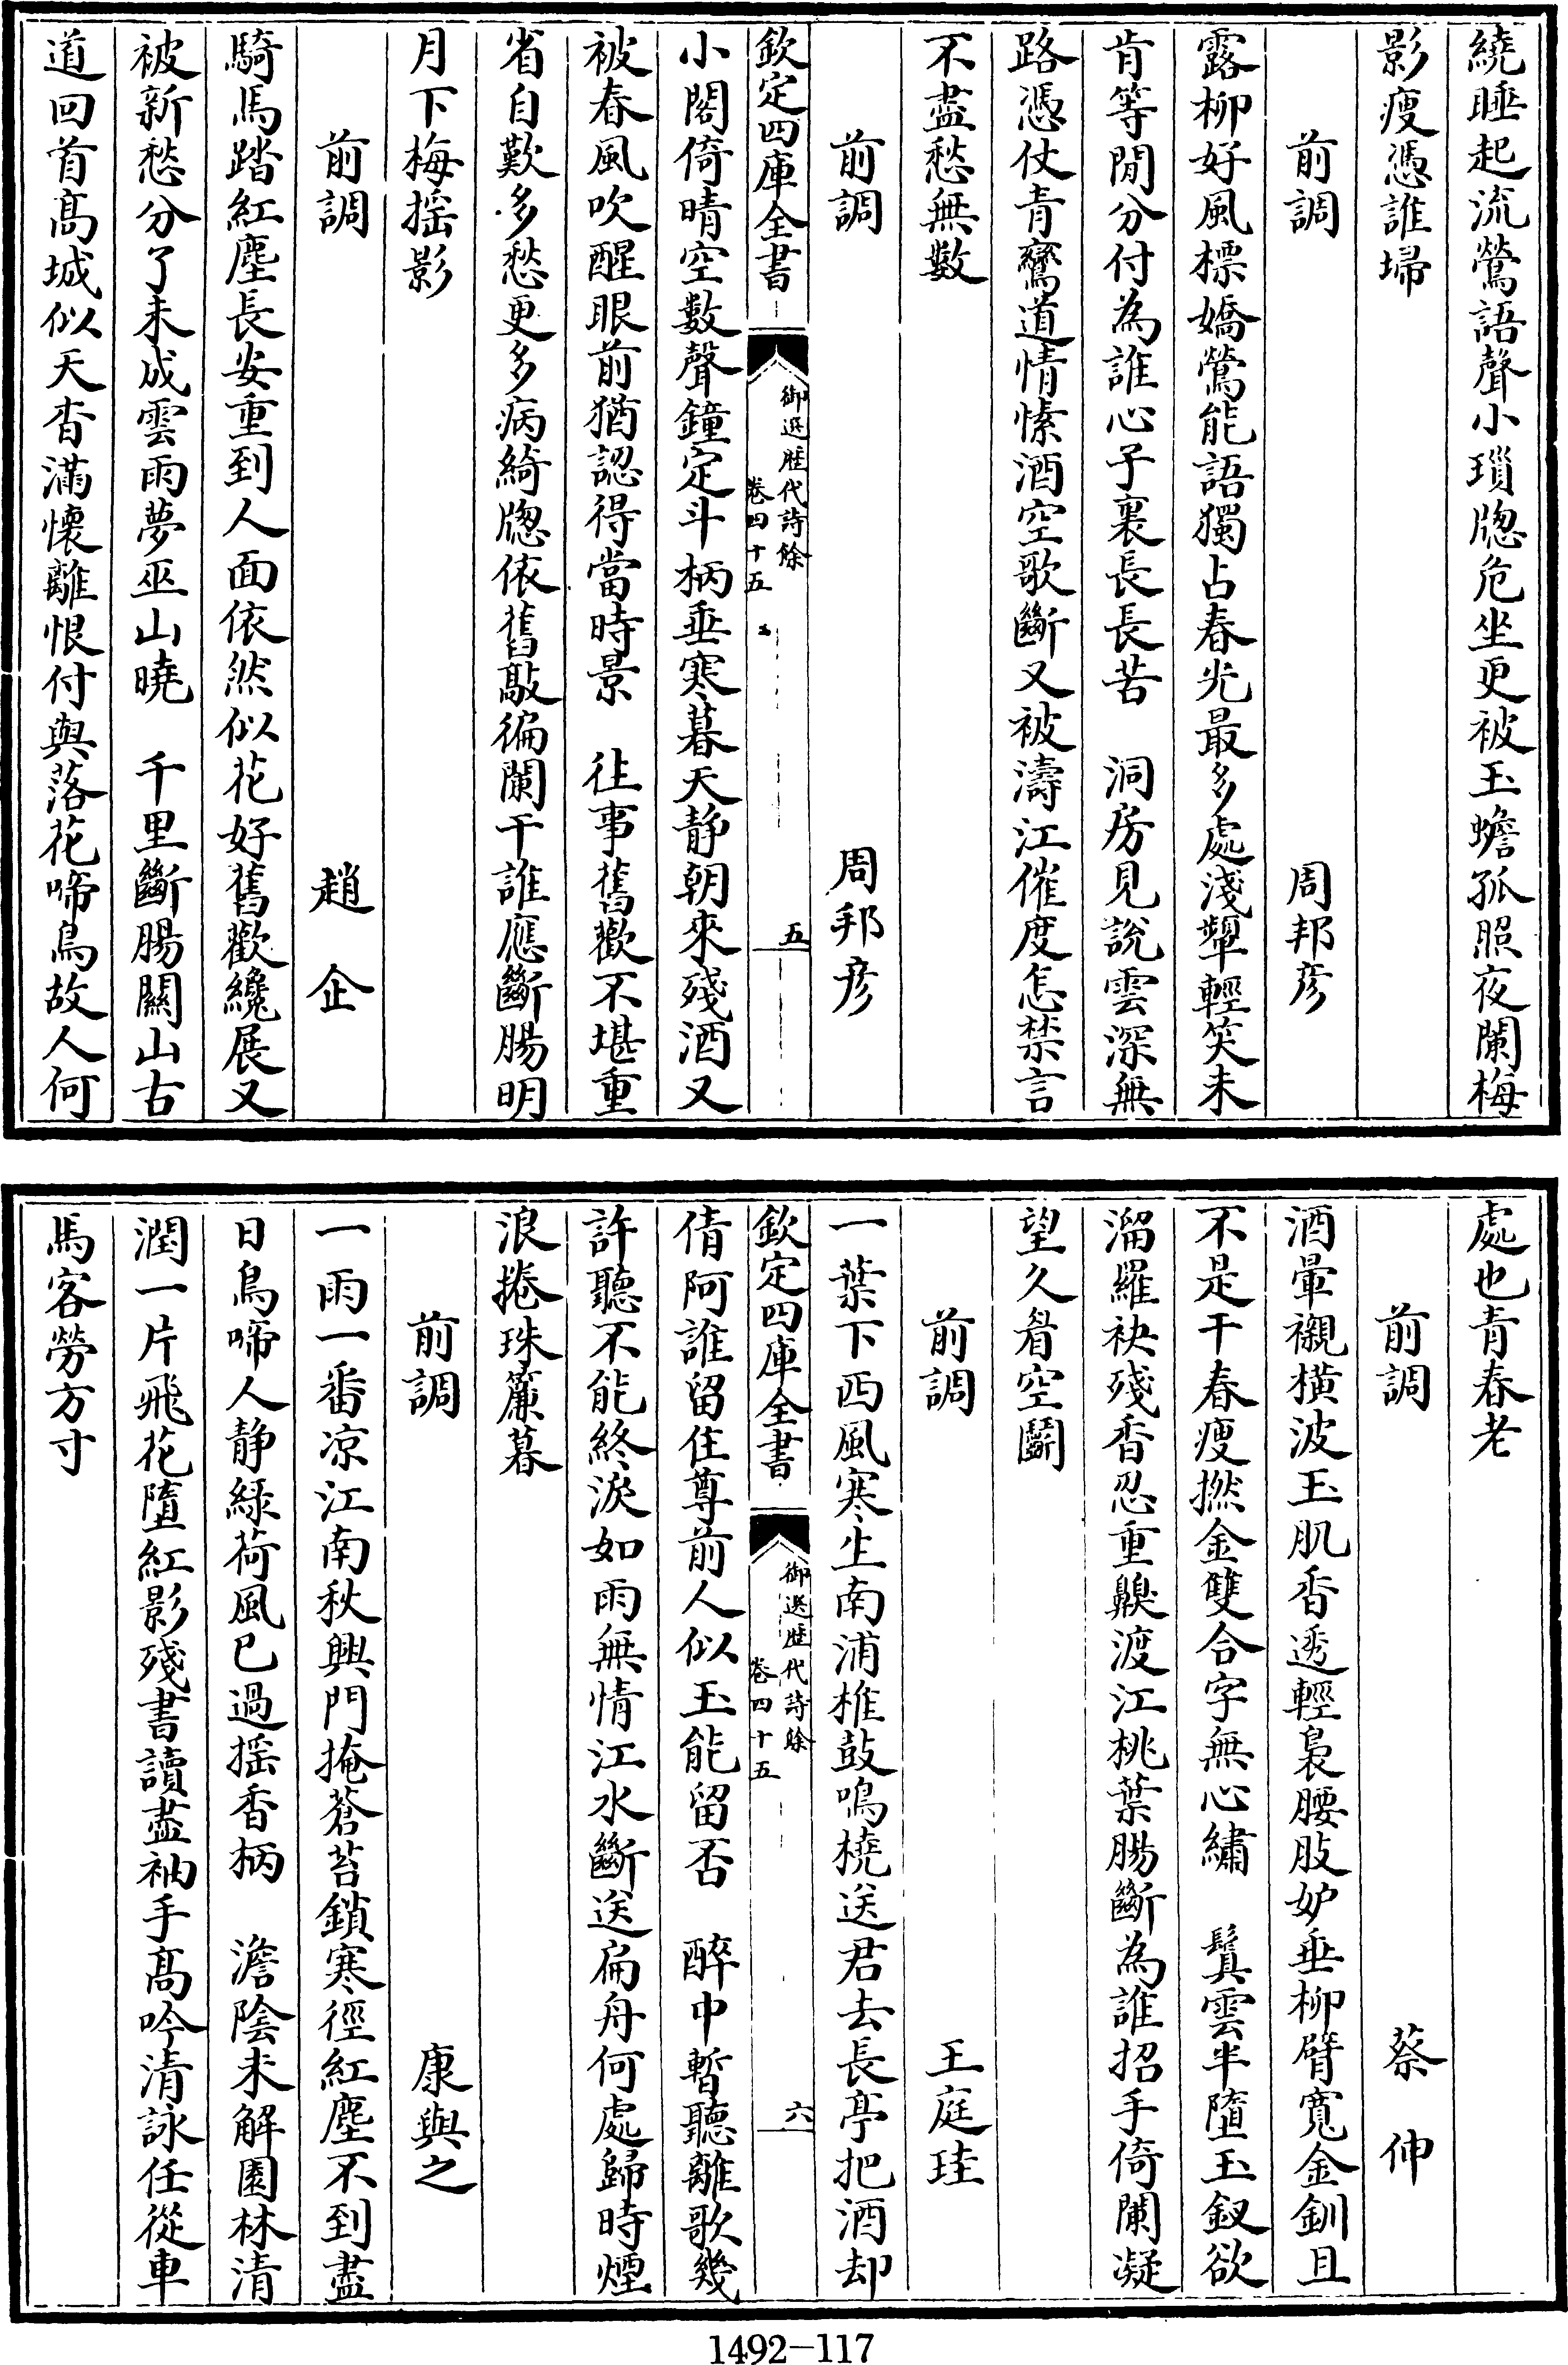 繞睡起流鶯語聲小瑣牕危坐更被玉蟾孤照夜闌梅
影瘦憑誰埽
前調　周邦彦
露柳好風標嬌鶯能語獨占春光最多處淺顰輕笑未
肯等閒分付為誰心子裏長長苦　洞房見說雲深無
路憑仗青鸞道情愫酒空歌斷又被濤江催度怎禁言
不盡愁無數
前調　周邦彦
欽定四庫全書　御選歷代詩餘　卷四十五　五
小閣倚晴空數聲鐘定斗柄垂寒暮天静朝來殘酒又
被春風吹醒眼前猶認得當時景　往事舊歡不堪重
省自歎多愁更多病綺牕依舊敲徧闌干誰應斷腸明
月下梅摇影
前調　趙企
騎馬踏紅塵長安重到人面依然似花好舊歡纔展又
被新愁分了未成雲雨夢巫山曉　千里斷腸關山古
道回首髙城似天杳滿懷離恨付與落花啼鳥故人何
處也青春老
前調　蔡伸
酒暈襯橫波玉肌香透輕裊腰肢妒垂柳臂寛金釧且
不是干春瘦撚金雙合字無心繡　鬒雲半墮玉釵欲
溜羅袂殘香忍重齅渡江桃葉腸斷為誰招手倚闌凝
望久眉空鬭
前調　王庭珪
一葉下西風寒生南浦椎鼓鳴橈送君去長亭把酒却
欽定四庫全書　御選歷代詩餘　卷四十五　六
倩阿誰留住尊前人似玉能留否　醉中暫聽離歌幾
許聽不能終淚如雨無情江水斷送扁舟何處歸時煙
浪捲珠簾暮
前調　康與之
一雨一番凉江南秋興門掩蒼苔鎖寒徑紅塵不到盡
日鳥啼人静緑荷風已過摇香柄　澹陰未解園林清
潤一片飛花墮紅影殘書讀盡袖手髙吟清詠任從車
馬客勞方寸
1492-117